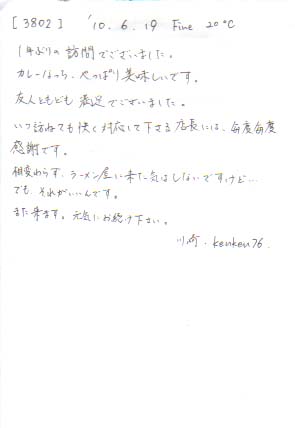 [3802] '10.6.19 Fine 20℃
1年ぶりの訪問でございました。
カレーはっち、やっぱり美味しいです。
友人ともども満足でございました。
いつ訪ねても快く対応して下さる店長には、毎度毎度
感謝です。
相変わらず、ラーメン屋に来た気はしないですけど…
でも、それがいいんです。
また来ます。元気にお続け下さい。
川崎・kenken76.